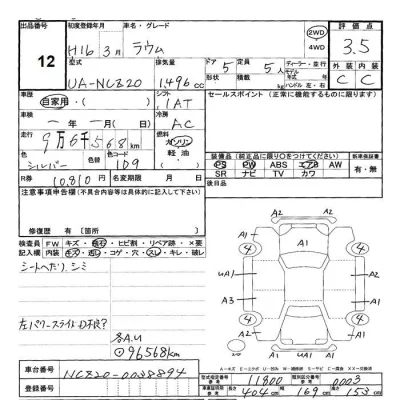 出品番号 初度登録年月 車名・グレード 2WD 4WD 評価点
12 H16年3月 ラウム 3.5
型式 排気量 ドア 定員 ディーラー・並行
UA-NCZ20 1,496 cc 5 5人 モデル年式
形状 積載 kg ハンドル 左・右 外装 内装
C C
車歴 シフト セールスポイント(正常に機能するものに限ります)
自家用・( ) IAT
車検 冷房
一年一月(日) AC
走行 燃料
9万6千568km ガソリン
軽油
色 色替 色コード
シルバー 1D9
R券 10,810円 名変期限 月 日
装備品(純正品に限り○をつけてください) 新車保証書
PS PW ABS エアB AW 有・無
SR ナビ TV カワ
注意事項申告欄(不具合内容等は具体的に記入して下さい) 後日品
修復歴 有(箇所
検査員 FW キズ・飛石・ヒビ割・リペア跡・×要
記入欄 内装 キズ・汚レ・コゲ・穴・スレ・キレ・破レ
シートヘたり、シミ
左パワースライド
各A,U
96568km
A2 A1 A2
4 A1 4
UA1 A1
A3 A1
UA1 A1
4 4
A2 A1 A2
車台番号 NCZ20-0038894
登録番号
型式指定番号 11800 類別区分番号 0003
長さ 404cm 幅 169cm 高さ 153cm